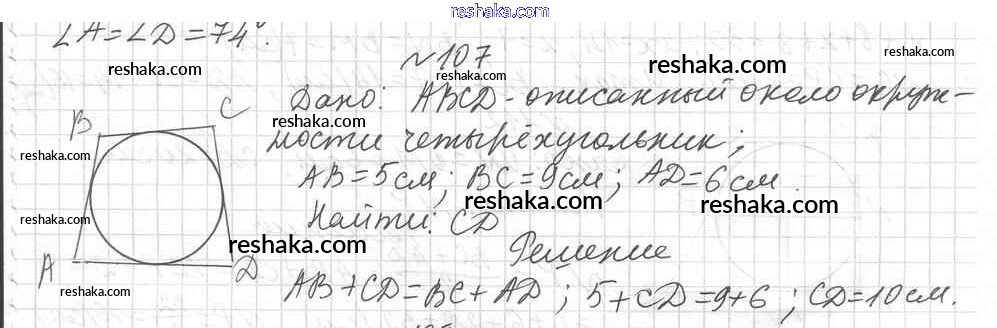 reshaka.com
∠A=∠D=74°.
№107
reshaka.com
reshaka.com
reshaka.com
Дано: ABCD - описанный около окруж-
B C
ности четырёхугольник;
reshaka.com
reshaka.com
AB=5см; BC=9см; AD=6см.
reshaka.com
reshaka.com
reshaka.com
Найти: CD
reshaka.com
Решение
A D
AB+CD=BC+AD; 5+CD=9+6; CD=10см.
reshaka.com